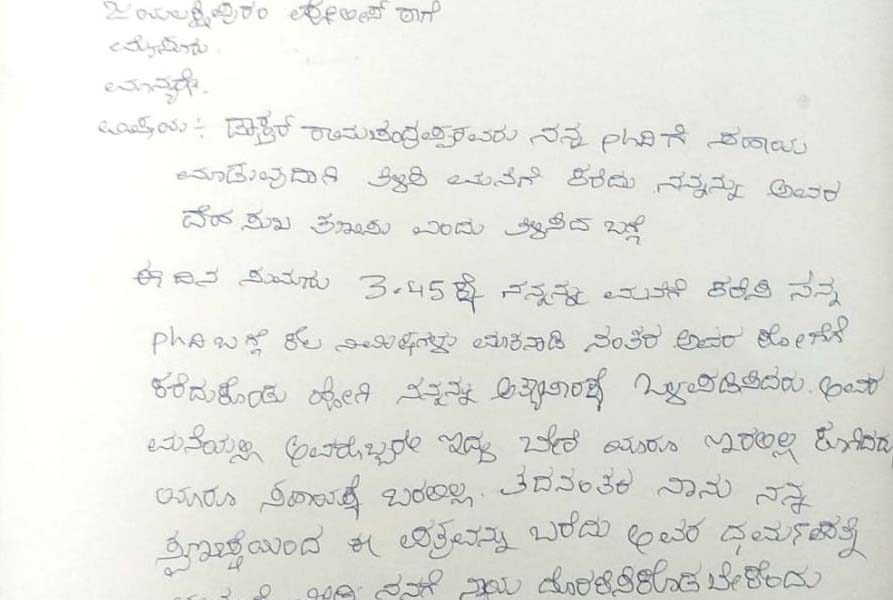 ಜಯಲಕ್ಷ್ಮಿಪುರಂ ಪೋಲೀಸ್ ಠಾಣೆ
ಮೈಸೂರು.
ಮಾನ್ಯರೇ.
ವಿಷಯ :- ಡಾಕ್ಟರ್ ರಾಮಚಂದ್ರಪ್ಪರವರು ನನ್ನ phdಗೆ ಸಹಾಯ
ಮಾಡುವುದಾಗಿ ತಿಳಿಸಿ ಮನೆಗೆ ಕರೆದು ನನ್ನನ್ನು ಅವರ
ದೇಹ ಸುಖ ಎಂದು ತಿಳಿಸಿದ ಬಗ್ಗೆ
ಈ ದಿನ ಸುಮಾರು 3.45ಕ್ಕೆ ನನ್ನನ್ನು ಮನೆಗೆ ಕರೆಸಿ ನನ್ನ
phd ಬಗ್ಗೆ ಕೆಲ ನಿಮಿಷಗಳು ಮಾತನಾಡಿ ನಂತರ ಅವರ ಕೋಣೆಗೆ
ಕರೆದುಕೊಂಡು ಹೋಗಿ ನನ್ನನ್ನು ಅತ್ಯಾಚಾರಕ್ಕೆ ಒಳಪಡಿಸಿದರು. ಅವರ
ಮನೆಯಲ್ಲಿ ಅವರೊಬ್ಬರೇ ಇದ್ದು ಬೇರೆ ಯಾರೂ ಇರಲಿಲ್ಲ ಕೂಗಿದರು
ಯಾರೂ ಸಹಾಯಕ್ಕೆ ಬರಲಿಲ್ಲ. ತದನಂತರ ನಾನು ನನ್ನ
ಸ್ವಇಚ್ಛೆಯಿಂದ ಈ ಪತ್ರವನ್ನು ಬರೆದು ಅವರ ಧರ್ಮಪತ್ನಿ
ನನಗೆ ನ್ಯಾಯ ದೊರಕಿಸಿಕೊಡಬೇಕೆಂದು